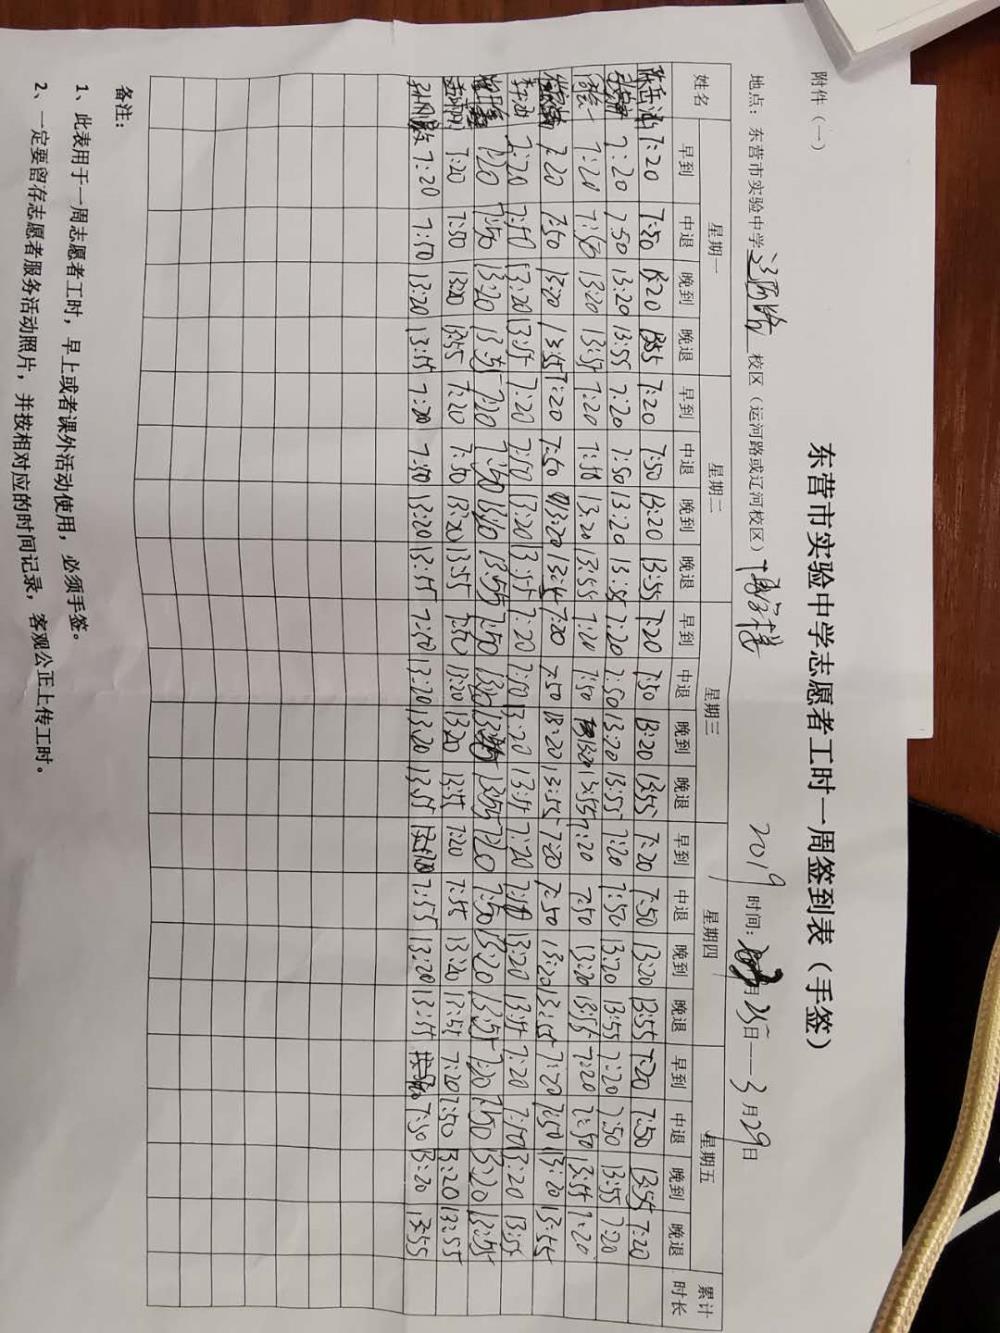 附件（一）
东营市实验中学志愿者工时一周签到表（手签）
地点：东营市实验中学 校区（运河路或辽河校区） 2019 时间： 月25日---3月29日
姓名 星期一 星期二 星期三 星期四 星期五 累计时长
早到 中退 晚到 晚退 早到 中退 晚到 晚退 早到 中退 晚到 晚退 早到 中退 晚到 晚退 早到 中退 晚到 晚退
7:20 7:50 13:20 13:55 7:20 7:50 13:20 13:55 7:20 7:50 13:20 13:55 7:20 7:50 13:20 13:55 7:20 7:50 13:55 7:20
7:20 7:50 13:20 13:55 7:20 7:50 13:20 13:55 7:20 7:50 13:20 13:55 7:20 7:50 13:20 13:55 7:20 7:50 13:55 7:20
7:20 7:50 13:20 13:55 7:20 7:50 13:20 13:55 7:20 7:50 13:20 13:55 7:20 7:50 13:20 13:55 7:20 7:50 13:55 7:20
7:20 7:50 13:20 13:55 7:20 7:50 13:20 13:55 7:20 7:50 13:20 13:55 7:20 7:50 13:20 13:55 7:20 7:50 13:20 13:55
7:20 7:50 13:20 13:55 7:20 7:50 13:20 13:55 7:20 7:50 13:20 13:55 7:20 7:50 13:20 13:55 7:20 7:50 13:20 13:55
7:20 7:50 13:20 13:55 7:20 7:50 13:20 13:55 7:50 13:20 13:55 7:20 7:50 13:20 13:55 7:20 7:50 13:20 13:55
7:20 7:50 13:20 13:55 7:20 7:50 13:20 13:55 7:50 13:20 13:20 13:55 7:20 7:55 13:20 13:55 7:20 7:50 13:20 13:55
7:20 7:50 13:20 13:55 7:20 7:50 13:20 13:55 7:50 13:20 13:20 13:55 7:55 13:20 13:55 7:50 13:20 13:55
备注：
1、此表用于一周志愿者工时，早上或者课外活动使用，必须手签。
2、一定要留存志愿者服务活动照片，并按相对应的时间记录，客观公正上传工时。